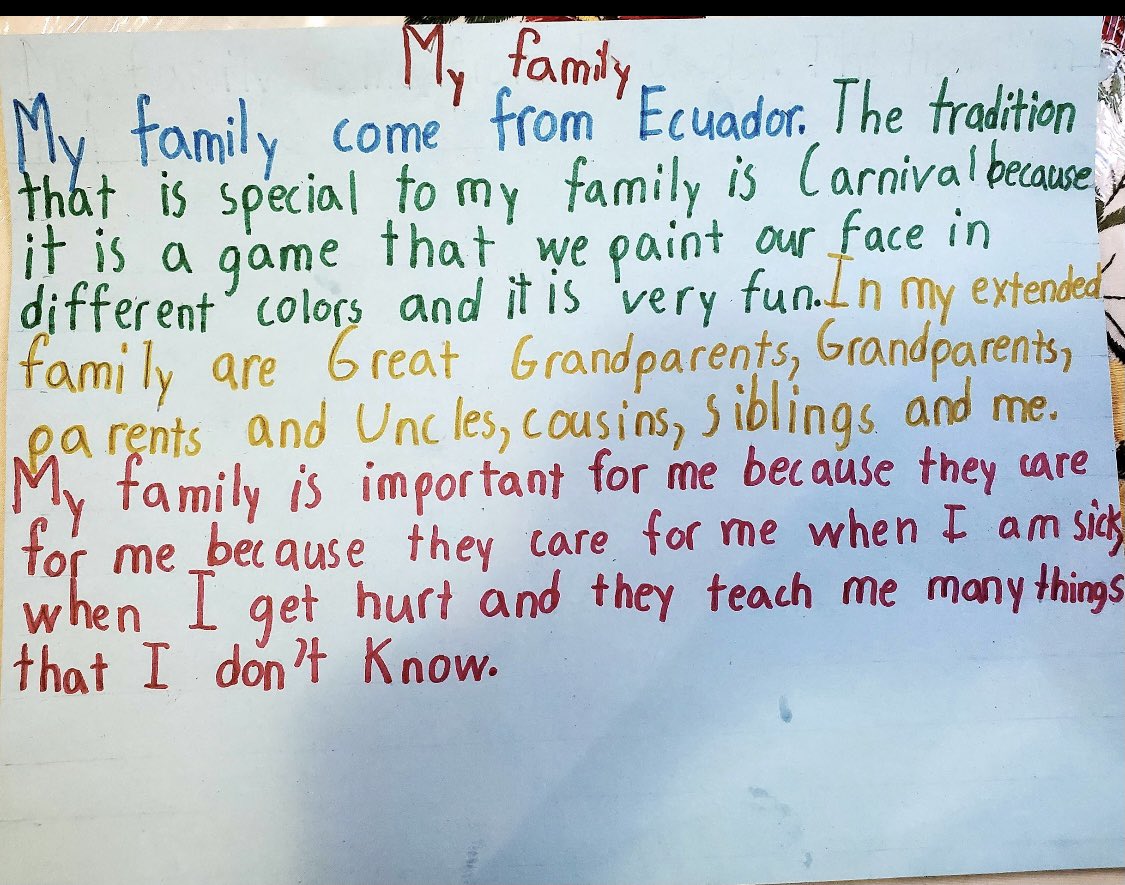 My family
My family come from Ecuador. The tradition
that is special to my family is Carnival because
it is a game that we paint our face in
different colors and it is very fun. In my extended
family are Great Grandparents, Grandparents,
parents and Uncles, cousins, siblings and me.
My family is important for me because they care
for me because they care for me when I am sick
when I get hurt and they teach me many things
that I don't know.